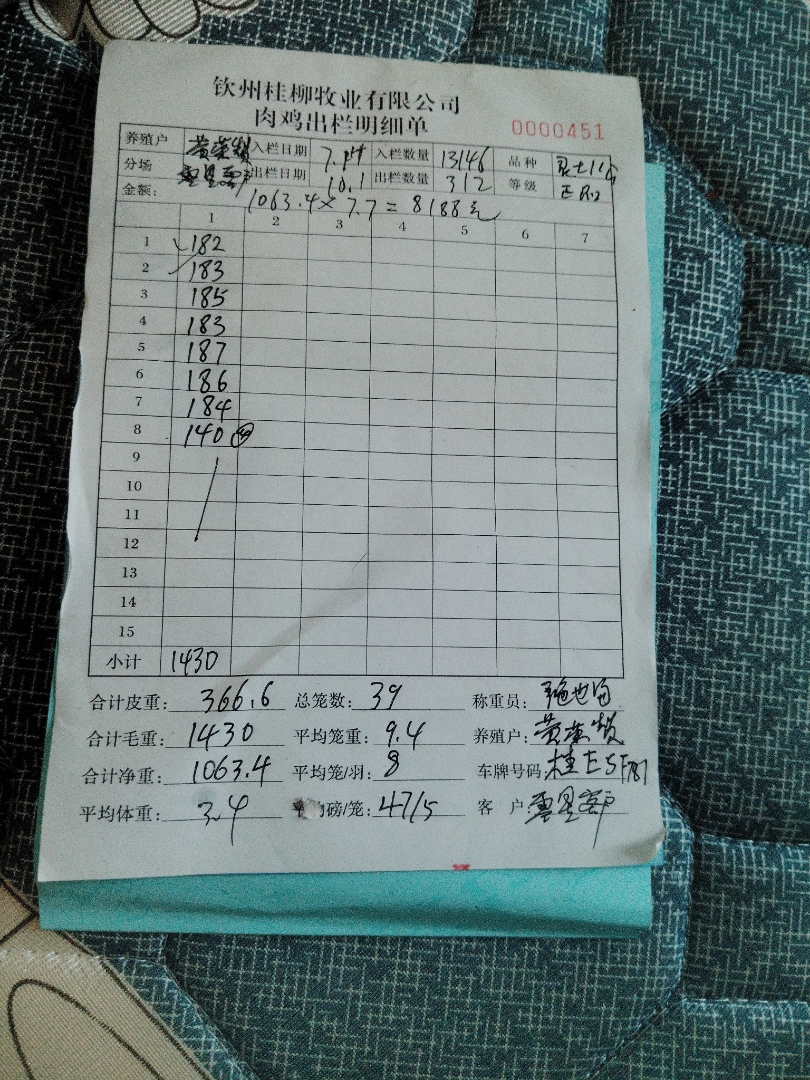 钦州桂柳牧业有限公司
肉鸡出栏明细单
0000451
养殖户 入栏日期 7. 入栏数量 13146 品种
分场 出栏日期 10.1 出栏数量 312 等级
金额: 1063.4×7.7=8188元
1 2 3 4 5 6 7
1 182
2 183
3 185
4 183
5 187
6 186
7 184
8 140 ④
9
10
11
12
13
14
15
小计 1430
合计皮重: 366.6 总笼数: 39 称重员:
合计毛重: 1430 平均笼重: 9.4 养殖户:
合计净重: 1063.4 平均笼/羽: 8 车牌号码: 桂E
平均体重: 3.4 磅/笼: 47/5 客 户: